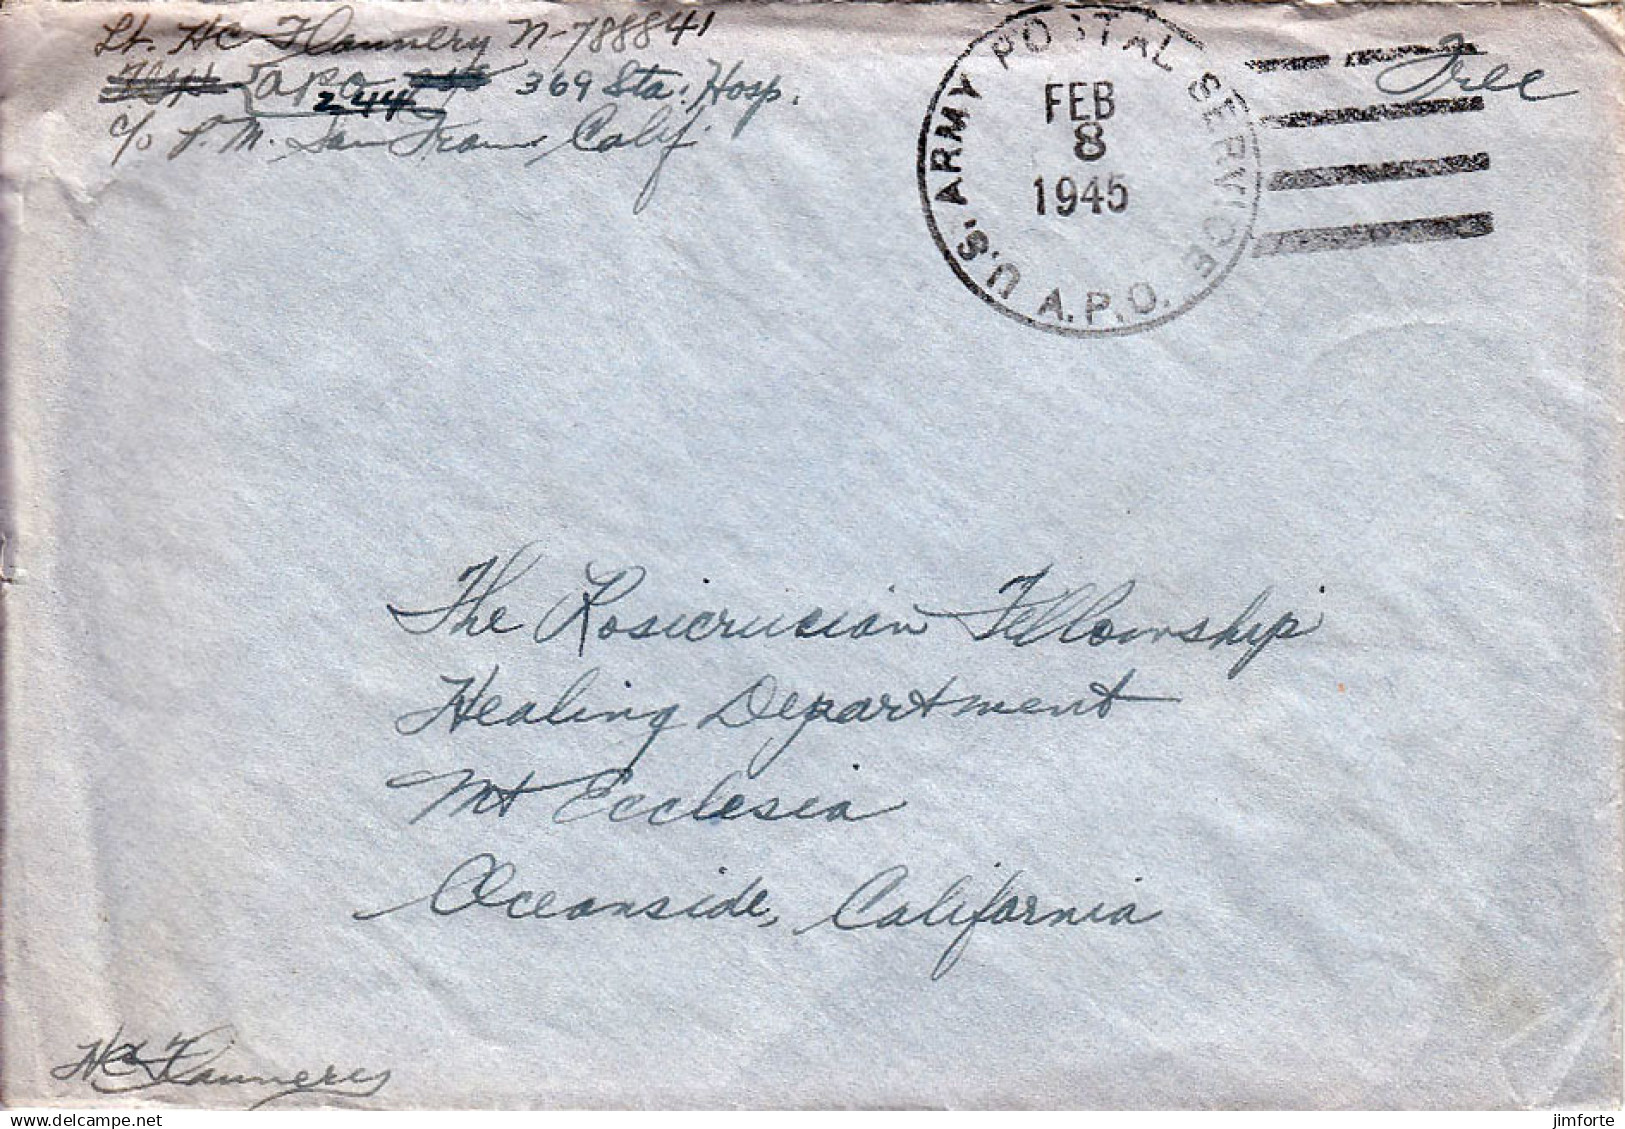 Lt. HC Flannery N-788841
A.P.O. 244 369 Sta. Hosp.
c/o P.M. San Fran Calif.
U.S. ARMY POSTAL SERVICE
A.P.O.
FEB
8
1945
Free
The Rosicrucian Fellowship
Healing Department
Mt Ecclesia
Oceanside, California
HC Flannery
delcampe.net
jimforte